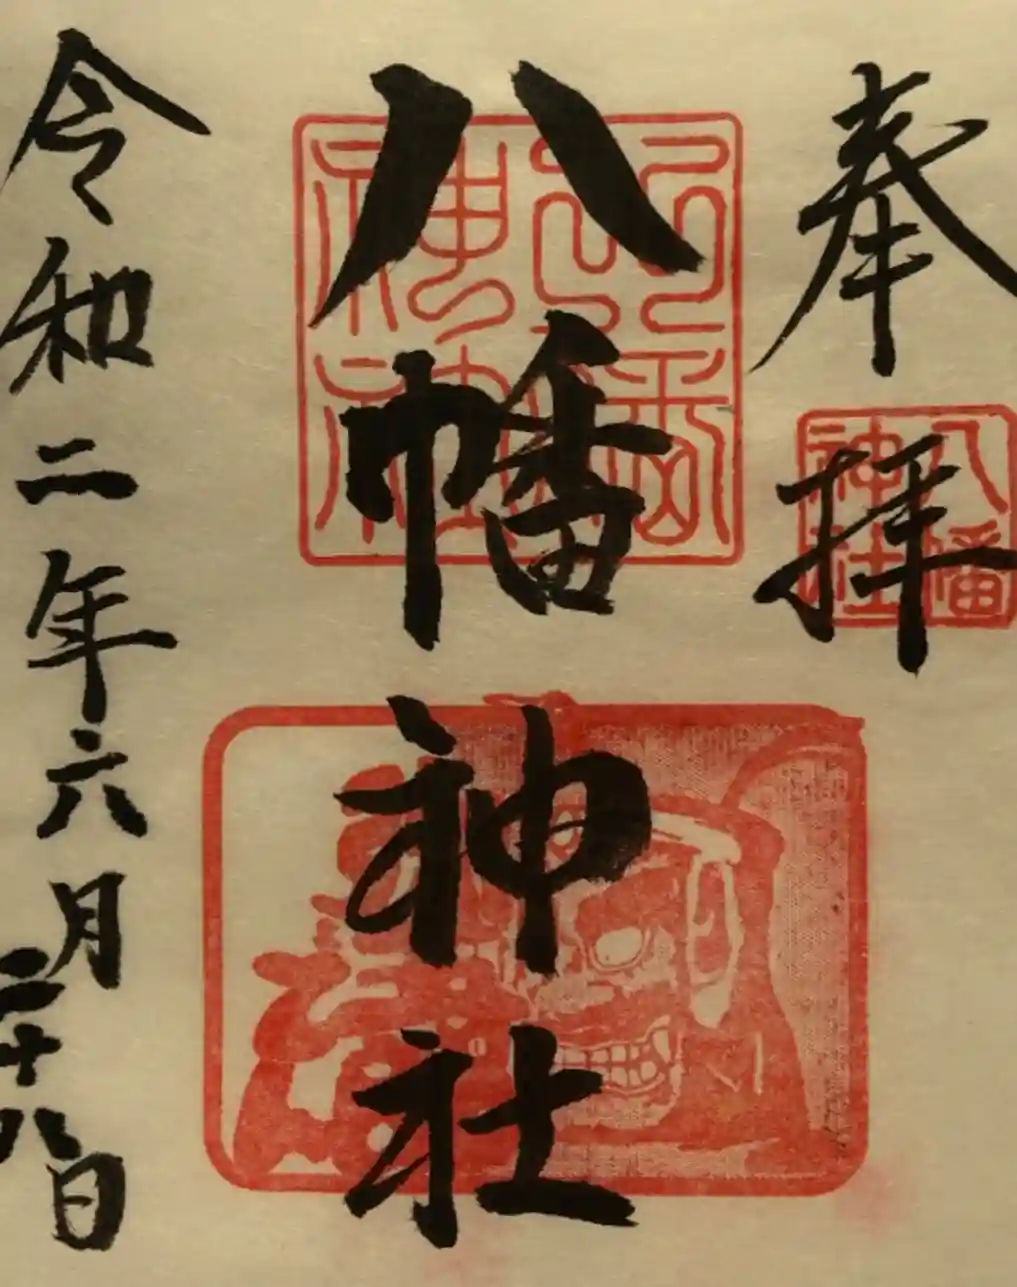 奉拝
八幡神社
八幡神社
八幡神社
令和二年六月二十八日